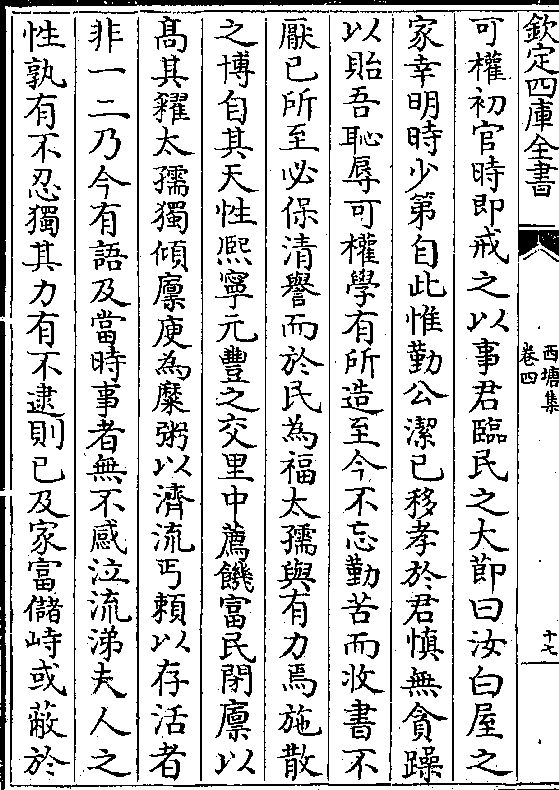 欽定四庫全書
西塘集
卷四
十七
可權初官時即戒之以事君臨民之大節曰汝白屋之
家幸明時少第自此惟勤公潔已移孝於君慎無貪躁
以貽吾恥辱可權學有所造至今不忘勤苦而收書不
厭已所至必保清譽而於民為福太孺與有力焉施散
之博自其天性熈寧元豐之交里中薦饑富民閉廪以
髙其糴太孺獨傾廪庾為糜粥以濟流丐頼以存活者
非一二乃今有語及當時事者無不感泣流涕夫人之
性孰有不忍獨其力有不逮則已及家富儲峙或蔽於